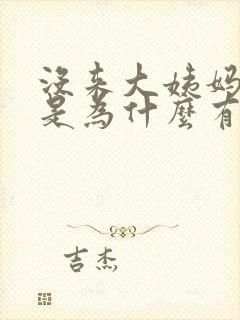 没来大姨妈
是为什麼有
吉杰